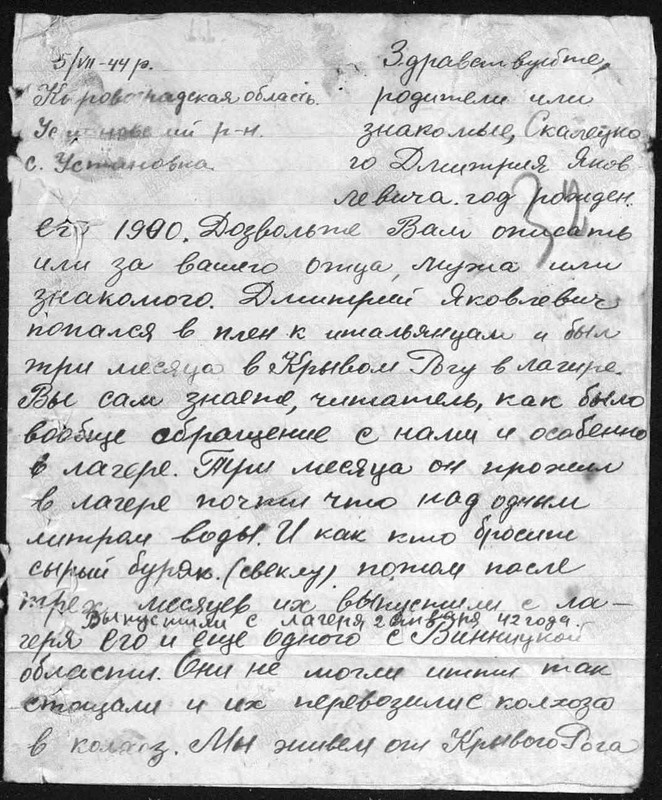 5/VII-44 р.
Кировоградская область.
Устиновский р-н.
с. Устиновка
Здравствуйте,
родители или
знакомые, Скалецко
го Дмитрия Яков
левича. год рожден.
32
его 1900. Дозвольте Вам описать
или за вашего отца, мужа или
знакомого. Дмитрий Яковлевич
попался в плен к итальянцам и был
три месяца в Крывом Рогу в лагире.
Вы сам знаете, читатель, как было
вообще обращение с нами и особенно
в лагере. Три месяца он прожил
в лагере почти что над одним
литром воды. И как кто бросит
сырый буряк. (свеклу) потом после
трех месяцев их выпустили с ла-
Выпустили с лагеря 2 января 42 года.
геря его и еще одного с Винницкой
области. Они не могли итти так
стощали и их перевозили с колхоза
в колхоз. Мы живем от Крывого Рога